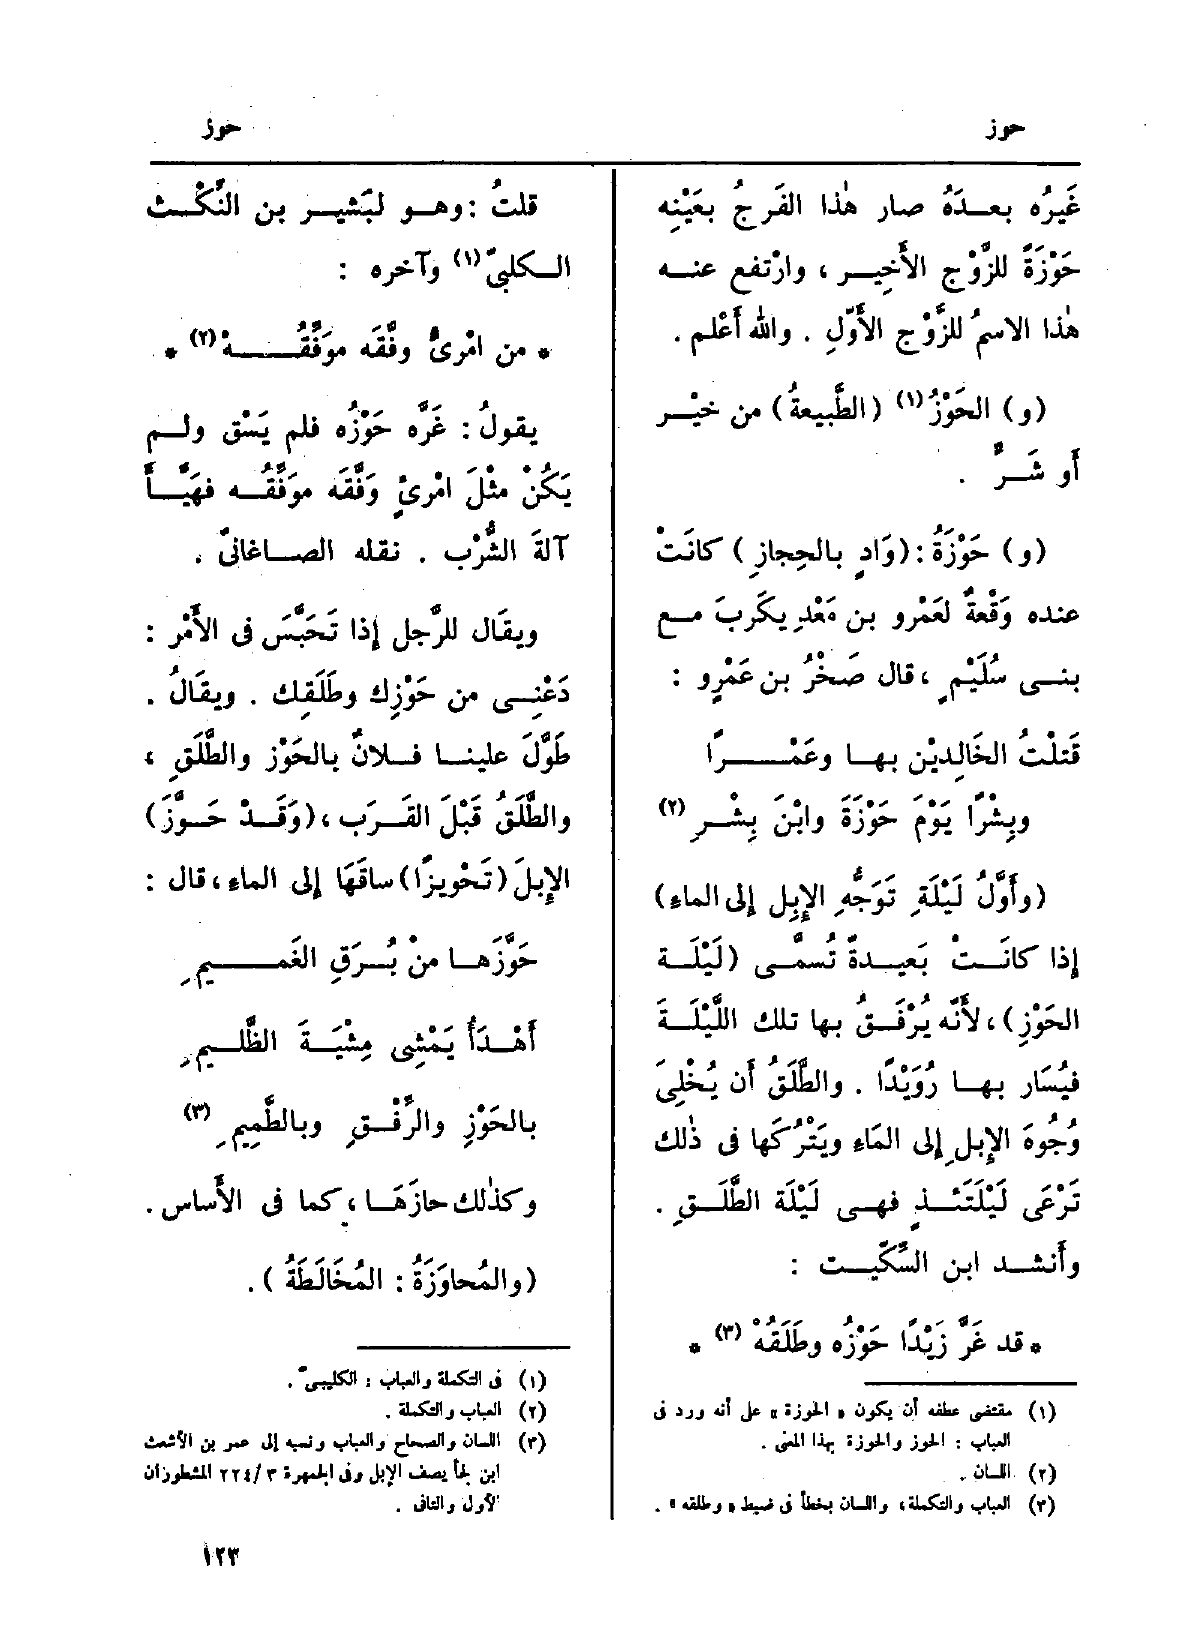 حوز
حوز
غَيرُه بعــدَهُ صار هٰذا الفَرجُ بعَيْنِه
حَوْزَةً للزَّوْجِ الأَخِيــر ، وارْتفع عنــه
هٰذا الاسمُ للزَّوْج الأَوّلِ . والله أَعْلم .
(و) الحَوْزُ(١) (الطَّبيعةُ) من خَيْــر
أَو شَــرٍّ .
(و) حَوْزَةُ : (وَادٍ بالحِجازِ ) كانَتْ
عنده وَقْعةٌ لعَمْرو بن مَعْدِ يكَرِبَ مــع
بنــى سُلَيْمٍ ، قال صَخْرُ بن عَمْرٍو :
قَتلْتُ الخَالِدَيْن بهــا وعَمْــــرًا
وبِشْرًا يَوْمَ حَوْزَةَ وابْنَ بِشْــرِ (٢)
(وأَوَّلُ لَيْلَةِ تَوَجُّهِ الإِبِل إِلى الماءِ)
إِذا كانَــتْ بَعِيــدةً تُسمَّى (لَيْلَــة
الحَوْزِ) ، لأَنَّه يُرْفَــقُ بها تلك اللَّيْلَــةَ
فيُسَار بهــا رُوَيْدًا . والطَّلَقُ أَن يُخْلِىَ
وُجُوهَ الإِبلِ إِلى المَاءِ ويَتْرُكَها فى ذٰلك
تَرْعَى لَيْلَتَئــذٍ فهــى لَيْلَة الطَّلَــقِ .
وأَنشــد ابن السِّكِّيــت :
* قد غَرَّ زَيْدًا حَوْزُه وطَلَقُهْ (٣) *
(١) مقتضى عطفه أن يكون « الحوزة » على أنه ورد فى
العباب : الحوز والحوزة بهذا المعنى .
(٢) اللسان .
(٣) العباب والتكملة ، واللسان بخطأ فى ضبط « وطلقه » .
قلتُ : وهــو لبَشيــر بن النِّكْــث
الــكلبىّ(١) وآخره :
* من امْرئٍ وفَّقَه موَفِّقُــــهْ (٢) *
يقولُ : غَرَّه حَوْزُه فلم يَسْق ولــم
يَكُنْ مثْلَ امْرئٍ وَفَّقَه موَفِّقُــه فهَيَّــأَ
آلةَ الشُّرْب . نقله الصــاغانىّ .
ويقَال للرَّجل إِذا تَحَبَّسَ فى الأَمْر :
دَعْنِــى من حَوْزِك وطَلَقِك . ويقَالُ .
طَوَّلَ علينــا فــلانٌ بالحَوْز والطَّلَقِ ،
والطَّلَقُ قَبْلَ القَــرَب ، (وَقَــدْ حَــوَّزَ)
الإِبِلَ (تَحْوِيزًا) ساقَهَا إِلى الماءِ ، قال :
حَوَّزَهــا منْ بُــرَقِ الغَمِــــيمِ
أَهْــدَأُ يَمْشِى مِشْيَــةَ الظَّلِــيمِ
بالحَوْزِ والرِّفْــقِ وبالطَّمِيمِ (٣)
وكذٰلك حازَهَــا ، كما فى الأَساس .
(والمُحاوَزَةُ : المُخَالَطَةُ ) .
(١) فى التكملة والعباب : الكليبىّ .
(٢) العباب والتكملة .
(٣) اللسان والصحاح والعباب ونسبه إلى عمر بن الأشعث
ابن لجأ يصف الإبل وفى الجمهرة ٣/٢٢٤ المشطوران
الأول والثانى .
١٢٣